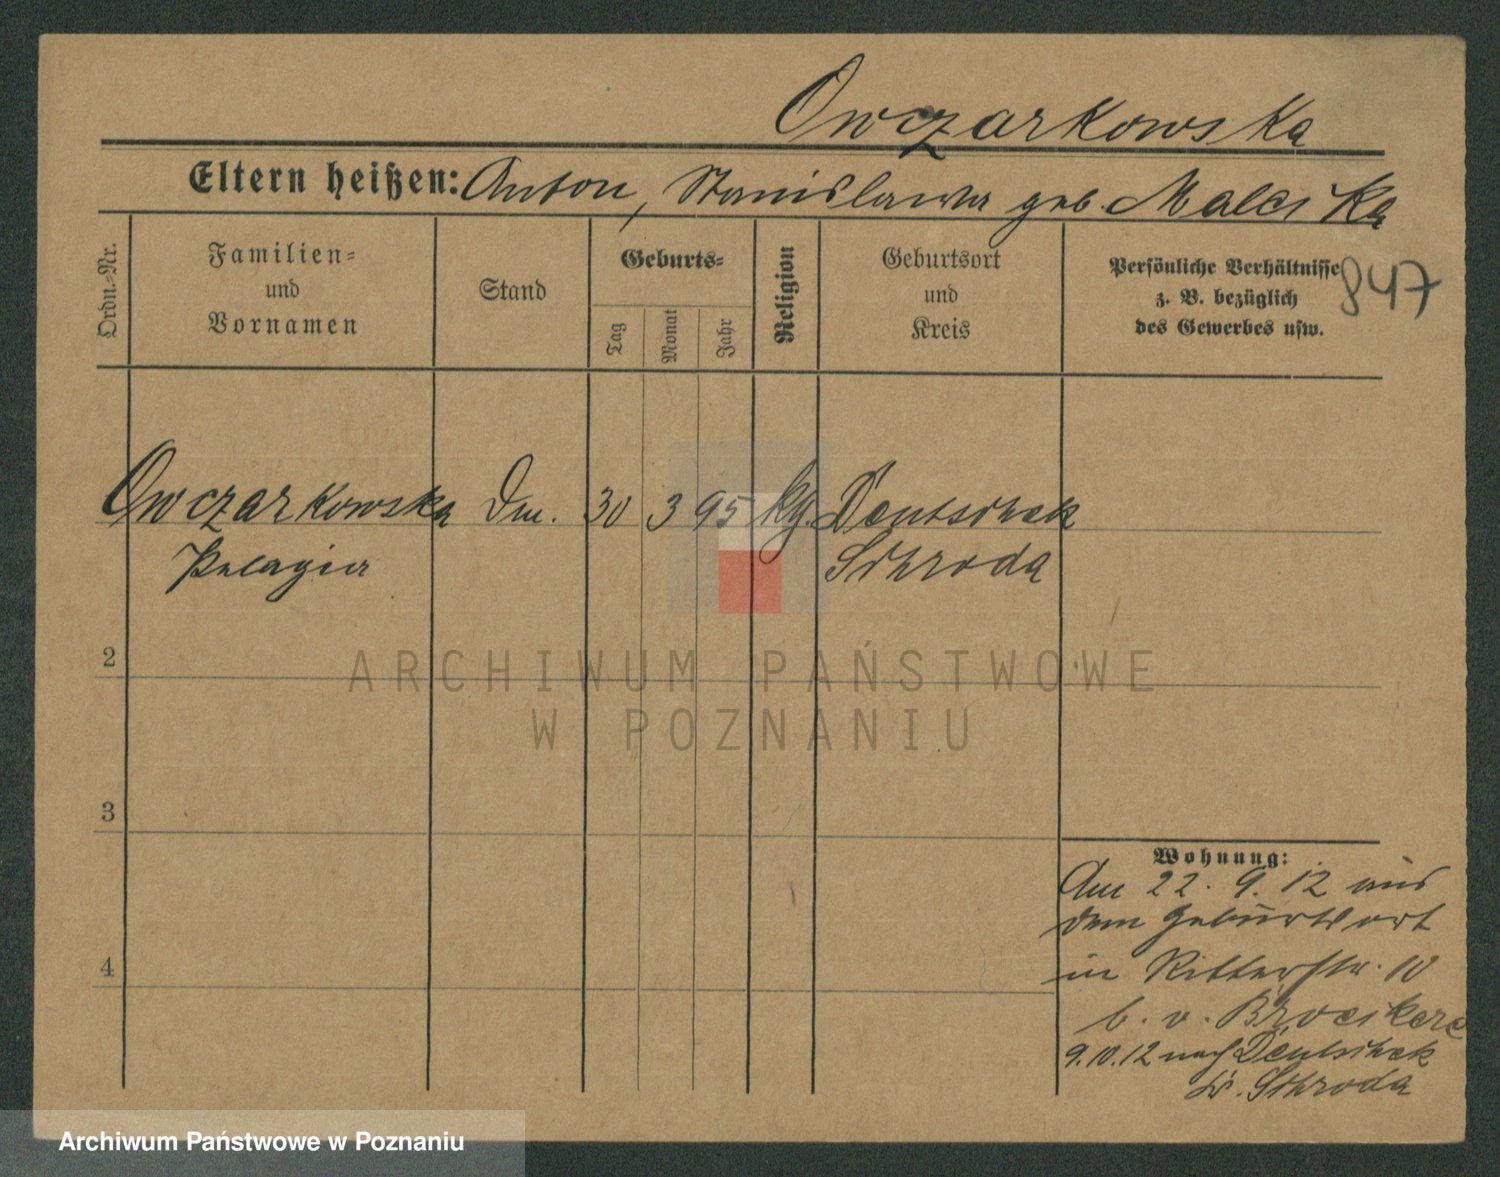 Owczarkowska
Eltern heißen: Anton, Stanislawa geb. Malcika
Ordn.-Nr.
Familien-
und
Vornamen
Stand
Geburts-
Tag
Monat
Jahr
Religion
Geburtsort
und
Kreis
Persönliche Verhältnisse
z. B. bezüglich
des Gewerbes usw.
847
Owczarkowska Dm. 30 3 95 kg. Deutscheck
Pelagia Schroda
2
ARCHIWUM PAŃSTWOWE
W POZNANIU
3
Wohnung:
Am 22. 9. 12 aus
dem Geburtsort
in Ritterstr. 10
b. v.
4
9.10.12 nach Deutscheck
Kr. Schroda
Archiwum Państwowe w Poznaniu